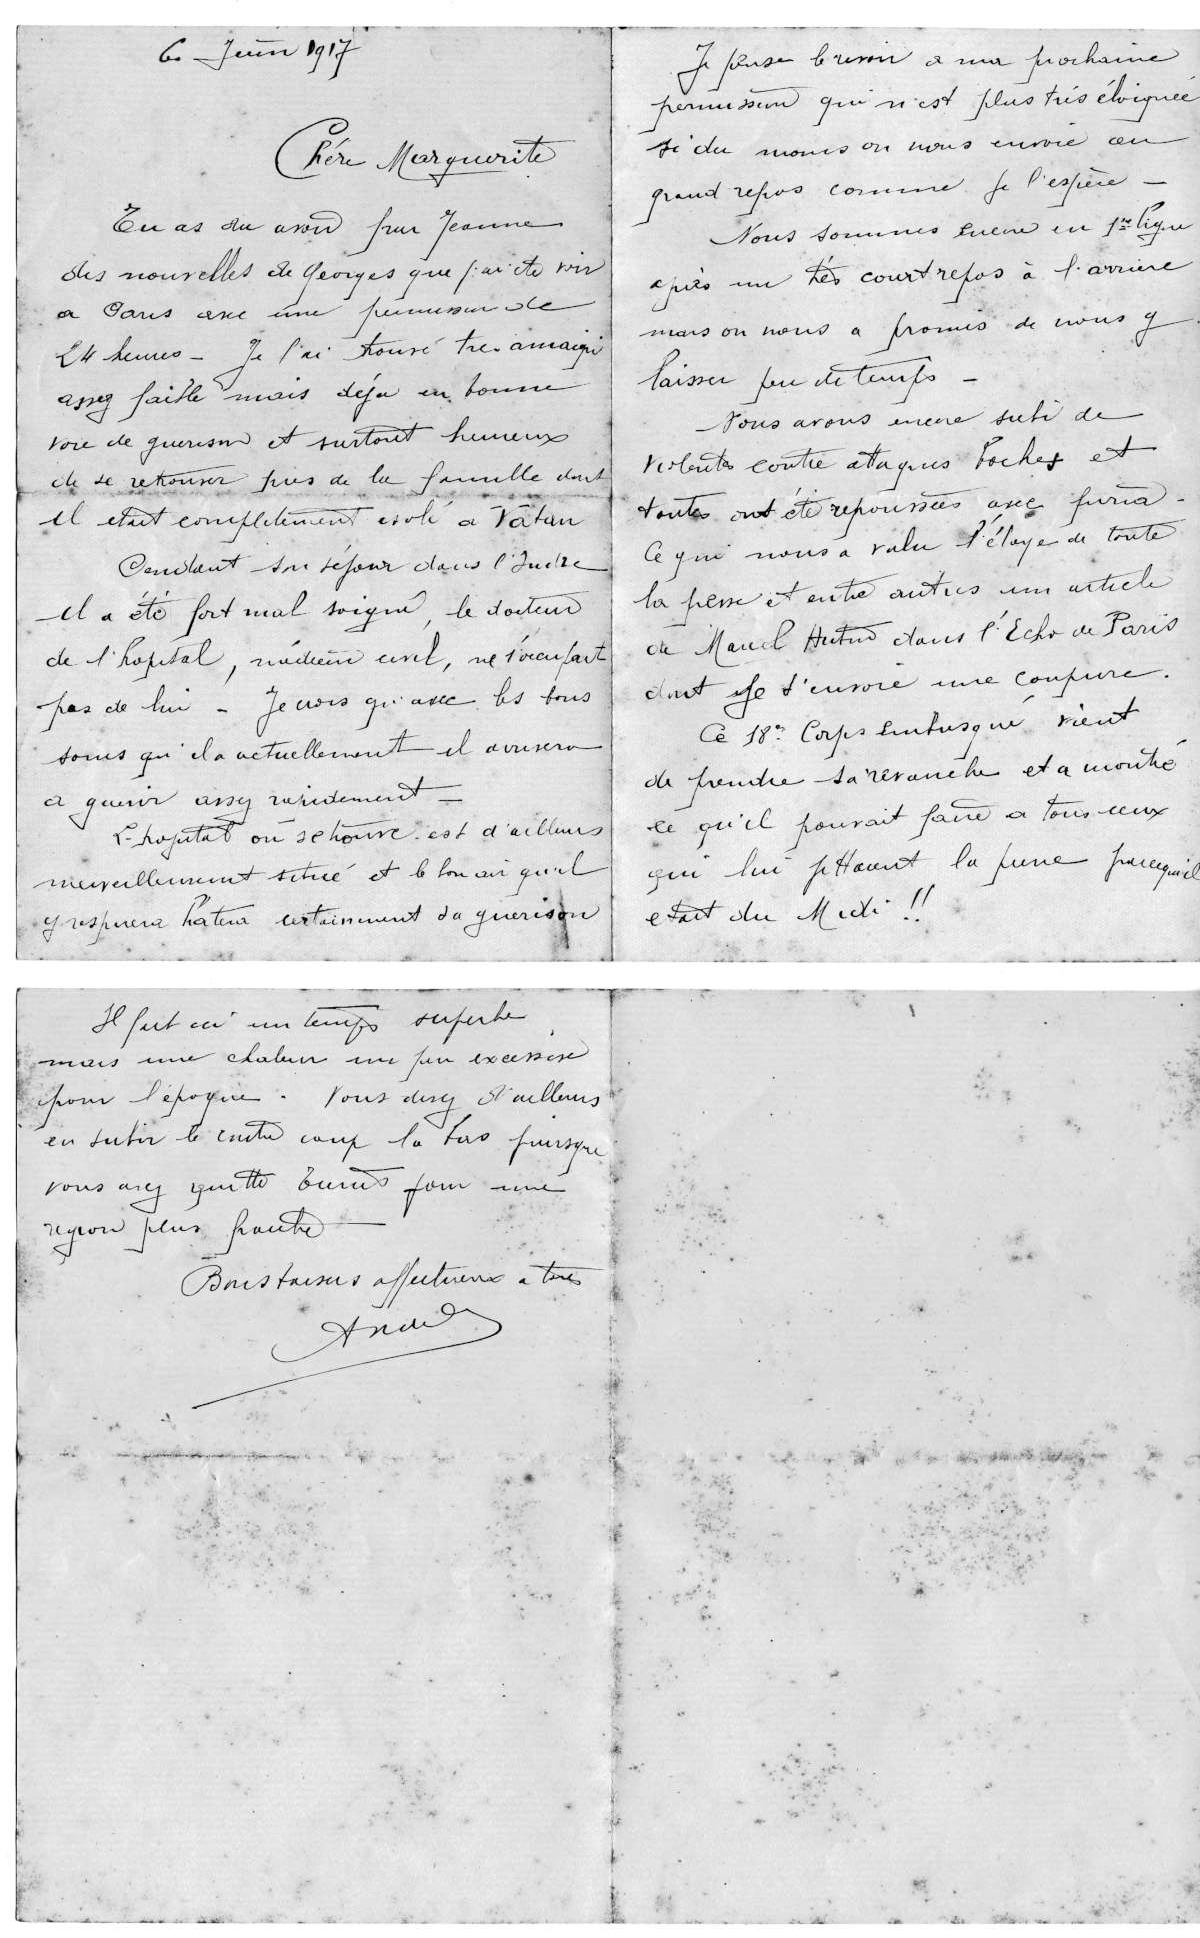 6. Juin 1917
Chére Marguerite
Tu as du avoir par Jeanne
des nouvelles de Georges que j'ai été voir
a Paris avec une permission de
24 heures - Je l'ai trouvé tres amaigri
assez faible mais déja en bonne
voie de guerison et surtout heureux
de se retrouver pres de la famille dont
il etait completement isolé a Vatan
Pendant son séjour dans l'Indre
il a été fort mal soigné, le docteur
de l'hopital, médecin civil, ne s'occupait
pas de lui - Je crois qu'avec les bons
soins qu'il a actuellement il arrivera
a guerir assez rapidement -
L'hopital où se trouve est d'ailleurs
merveilleusement situé et le bon air qu'il
y respirera hatera certainement sa guerison
Je pense le revoir a ma prochaine
permission qui n'est plus très éloignée
si du moins on nous envoie au
grand repos comme je l'espère -
Nous sommes encore en 1re ligne
après un très court repos à l'arriere
mais on nous a promis de nous y
laisser peu de temps -
Nous avons encore subi de
violentes contre attaques boches et
toutes ont été repoussées avec furia -
Ce qui nous a valu l'éloge de toute
la presse et entre autres un article
de Marcel Hutin dans l'Echo de Paris
dont je t'envoie une coupure.
Ce 18e Corps embusqué vient
de prendre sa revanche et a montré
ce qu'il pouvait faire a tous ceux
qui lui jettaient la pierre parcequ'il
etait du Midi !!
Il fait ici un temps superbe
mais une chaleur un peu excessive
pour l'époque. Vous devez d'ailleurs
en subir le contre coup la bas puisque
vous avez quitté pour une
region plus
Bons baisers affectueux a tous
André